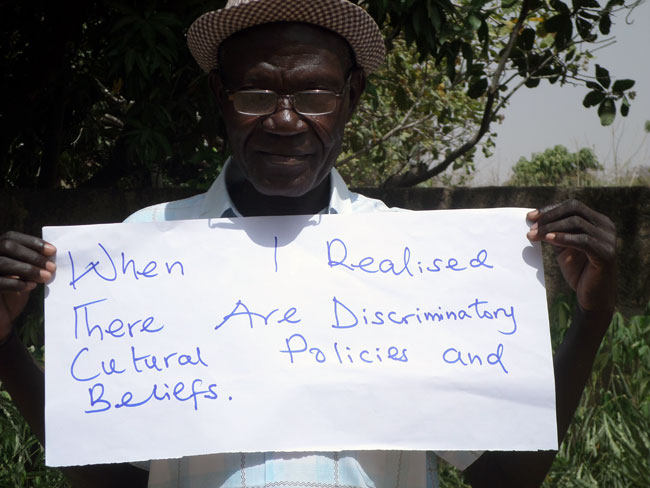 When I Realised
There Are Discriminatory
Cutural Policies and
Beliefs.